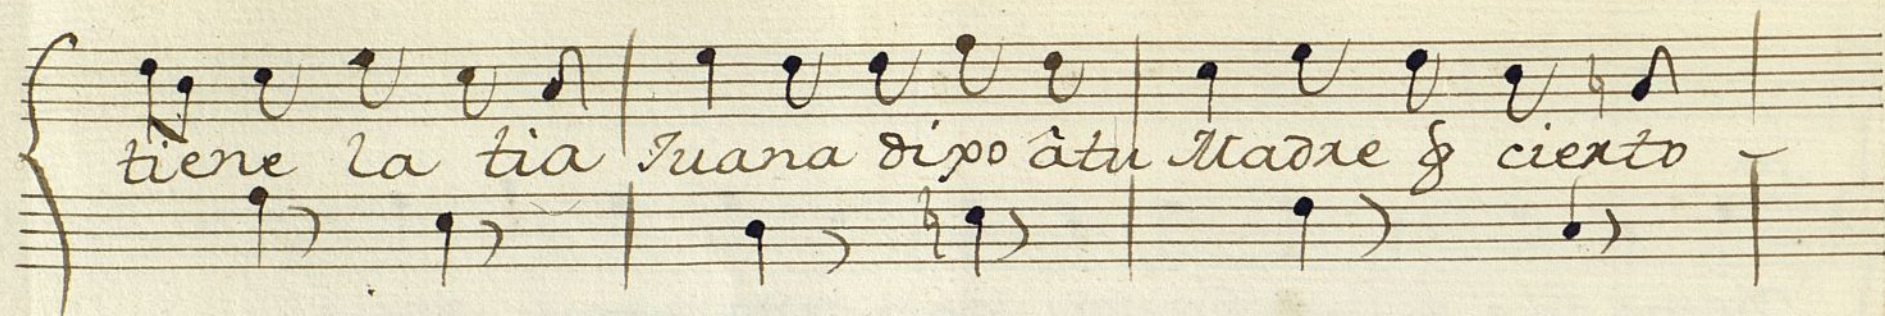 tiene la tia Juana dixo âtu Madre q cierto